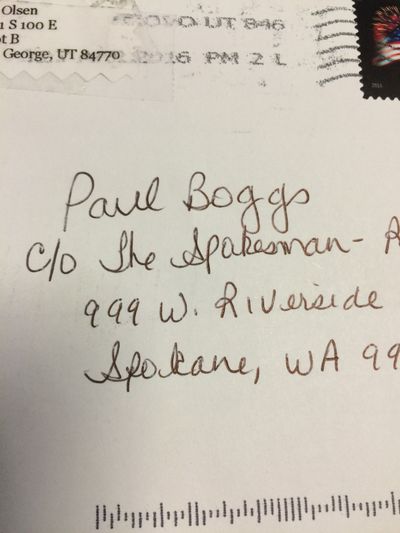 Olsen
1 S 100 E
t B
George, UT 84770
PROVO UT 846
2016 PM 2 L
2011
Paul Boggs
c/o The Spokesman-R
999 W. Riverside
Spokane, WA 99